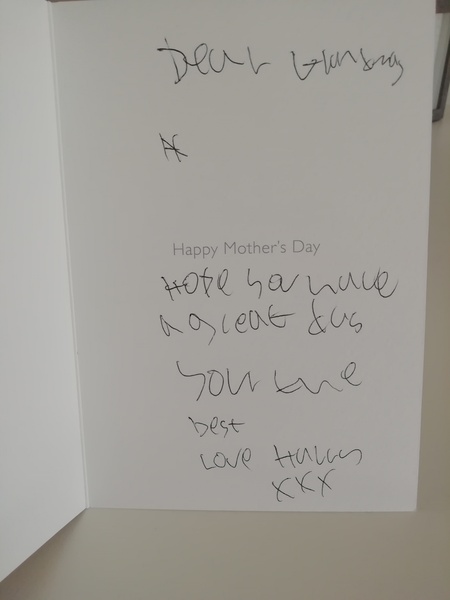 Dear Granny
Happy Mother's Day
Hope you have
a great day
your the
best
love
xxx